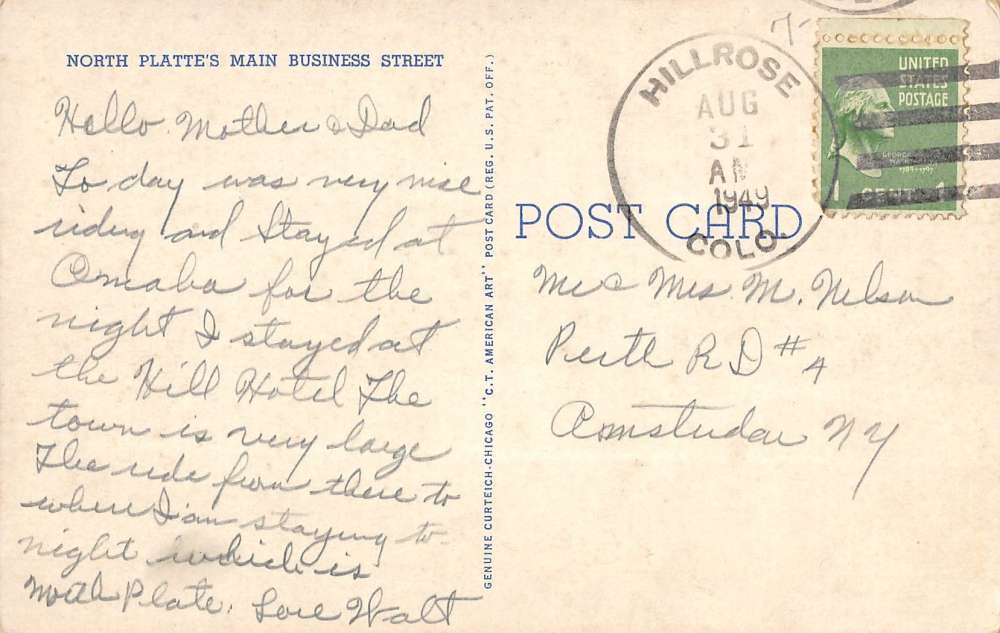 NORTH PLATTE'S MAIN BUSINESS STREET
Hello Mother & Dad
To day was very nise
riding and stayed at
Omaha for the
night I stayed at
the Hill Hotel The
town is very large
The ride from there to
where I am staying to-
night which is
North Plate. Love Walt
GENUINE CURTEICH-CHICAGO "C.T. AMERICAN ART" POST CARD (REG. U.S. PAT. OFF.)
7-
HILLROSE
AUG
31
AM
1949
COLO.
UNITED
STATES
POSTAGE
GEORGE
1789-1797
1 CENT 1
POST CARD
Mr & Mrs M. Nelson
Perth RD #4
Amsterdam NY